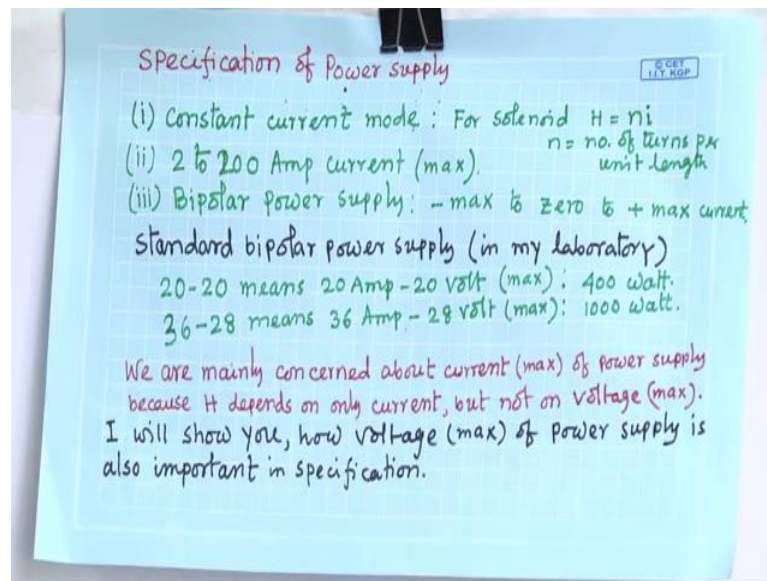 Specification of Power supply
© CET
I.I.T. KGP
(i) Constant current mode : For solenoid H = ni
n = no. of turns per
unit length
(ii) 2 to 200 Amp current (max).
(iii) Bipolar Power Supply: - max to zero to + max current
Standard bipolar power supply (in my laboratory)
20-20 means 20 Amp - 20 volt (max) : 400 watt.
36-28 means 36 Amp - 28 volt (max): 1000 watt.
We are mainly concerned about current (max) of power supply
because H depends on only current, but not on voltage (max).
I will show you, how voltage (max) of power supply is
also important in specification.